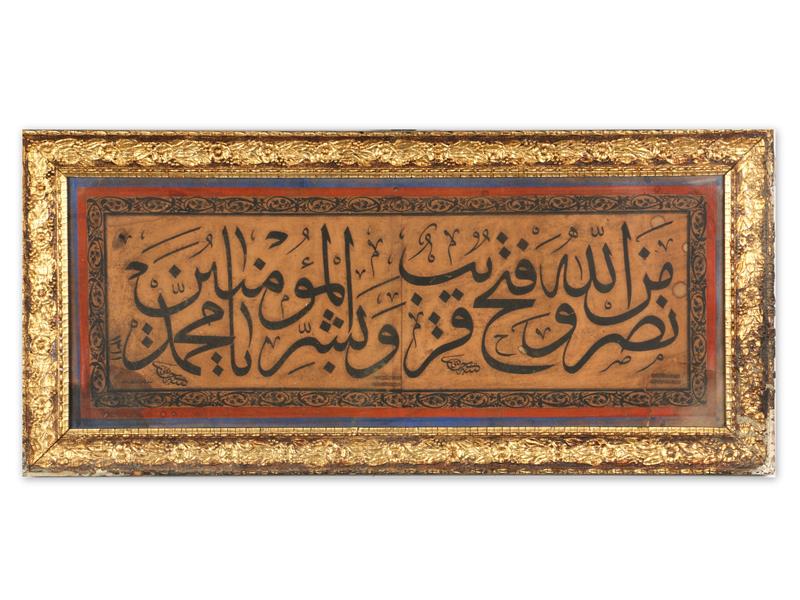 نصر من الله وفتح قريب وبشر المؤمنين يا محمد
١٣١١